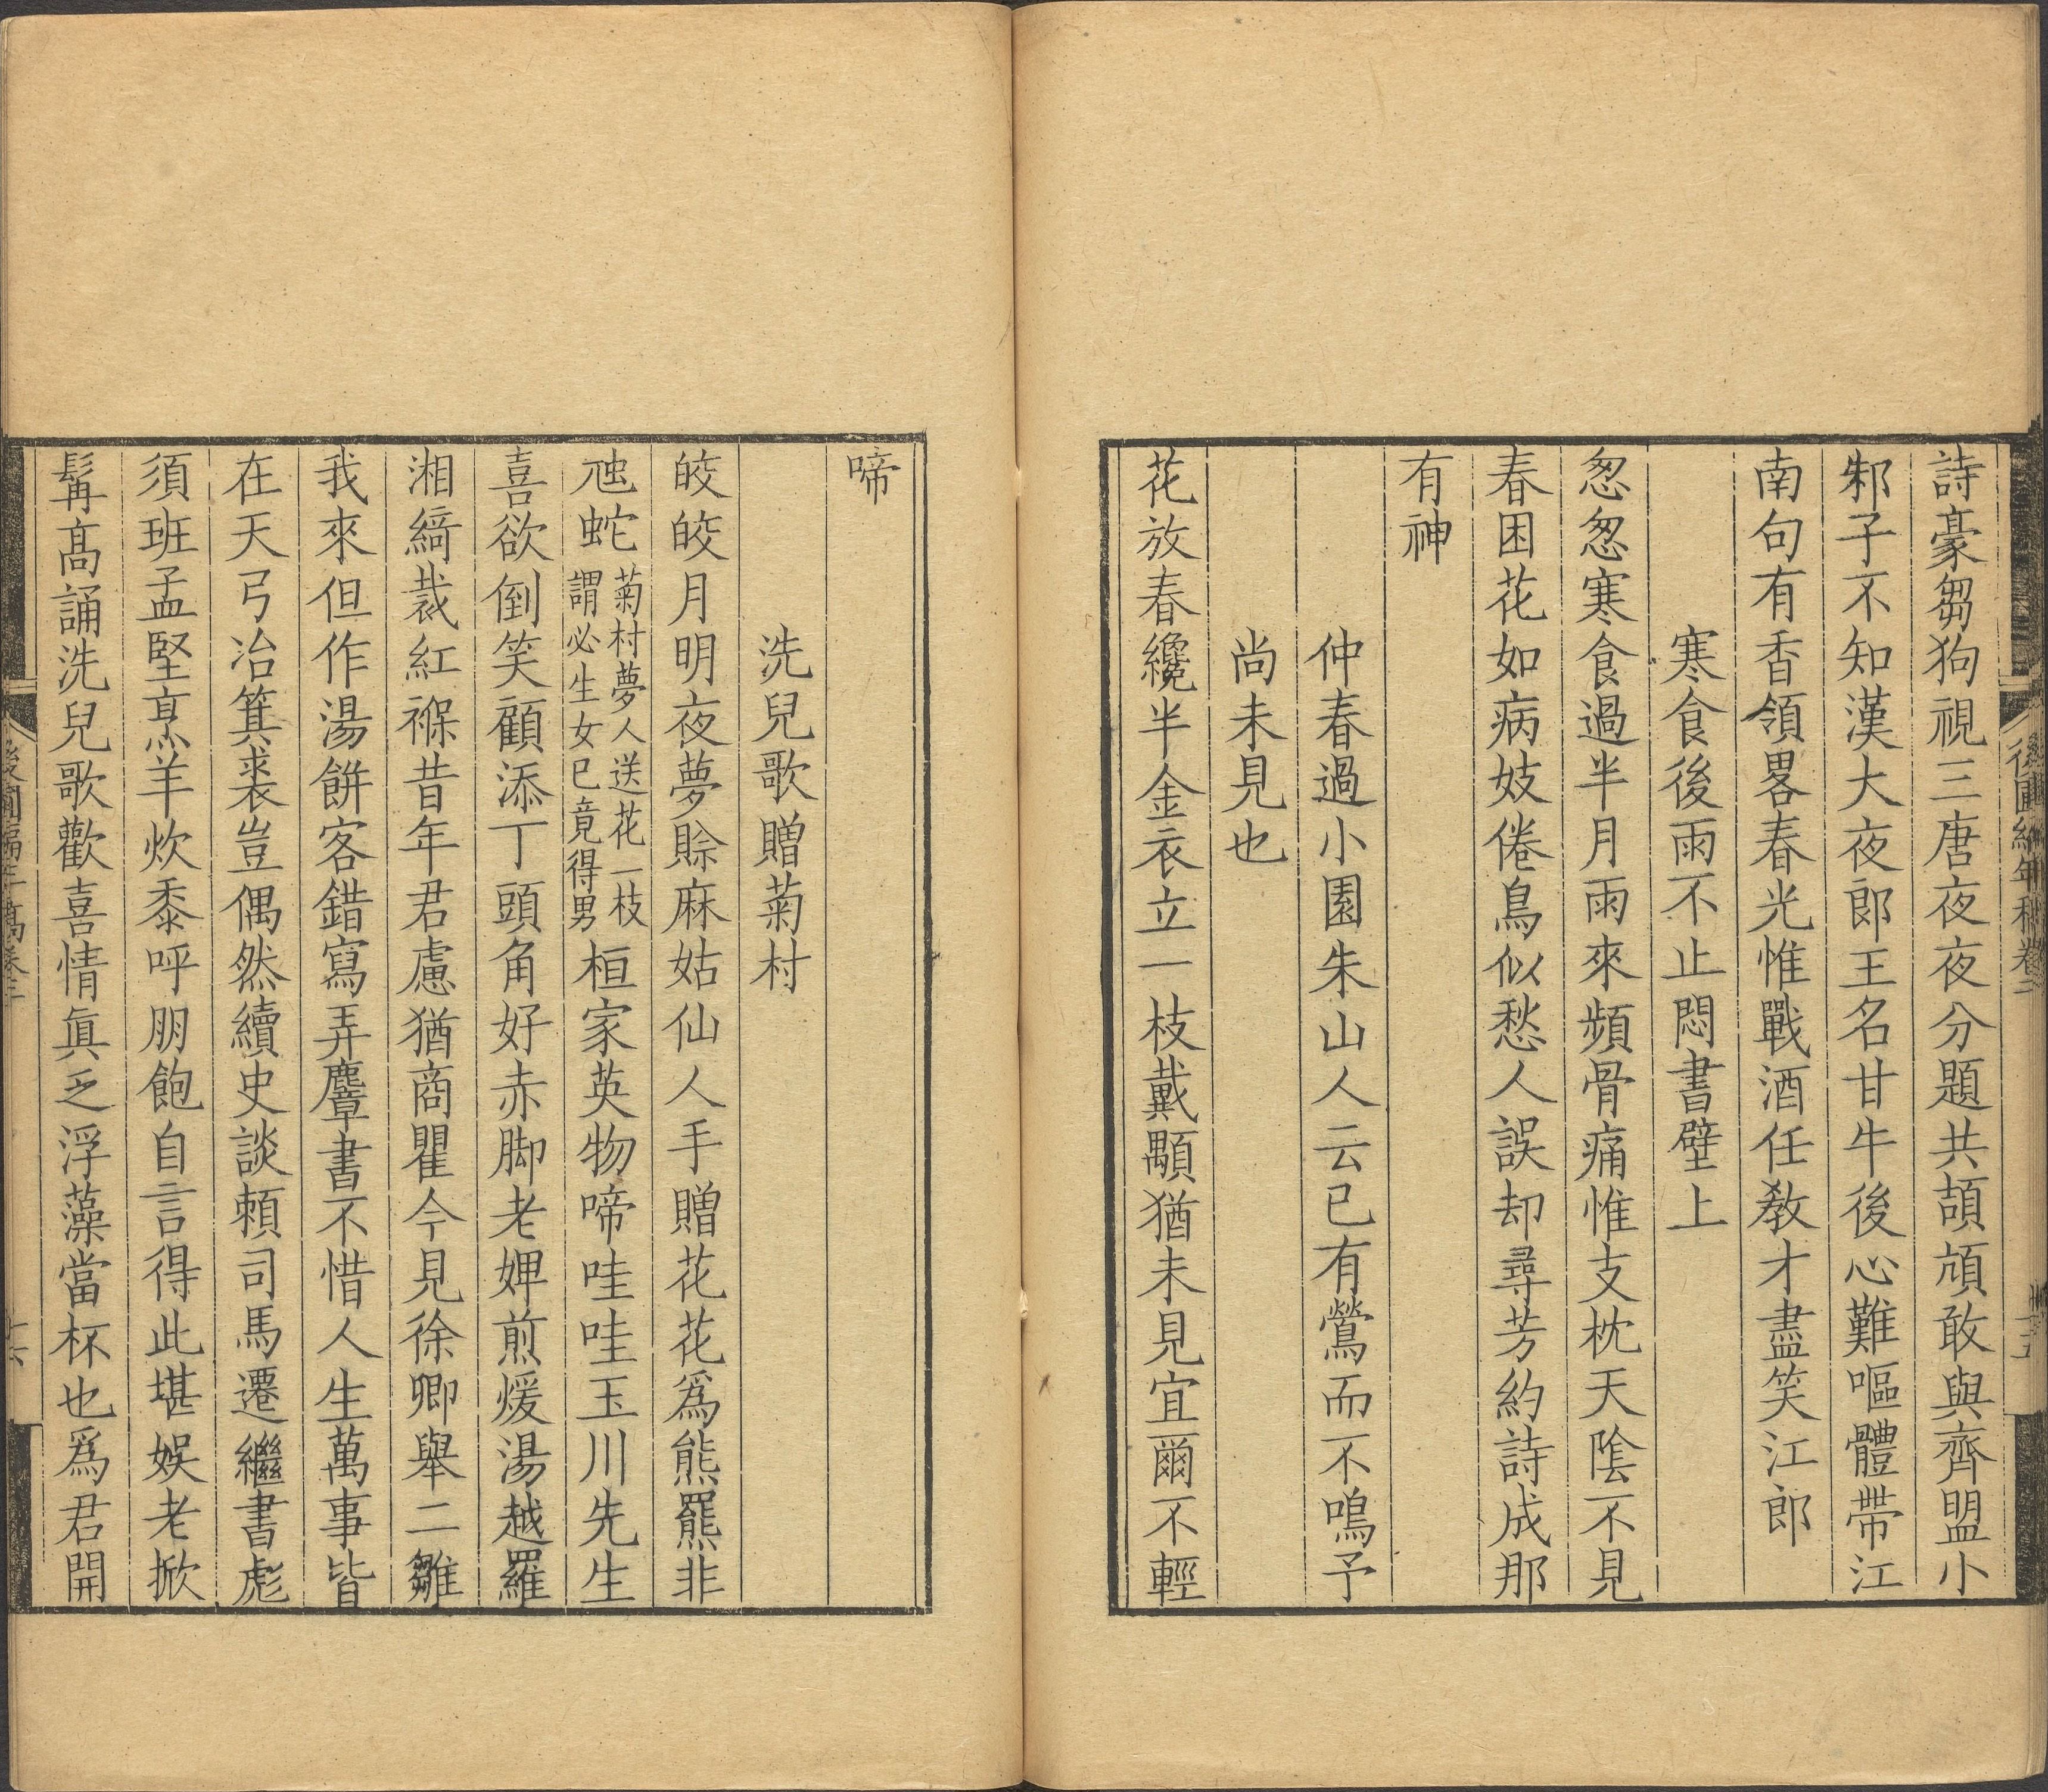 詩豪芻狗視三唐夜夜分題共頡頏敢與齊盟小
邾子不知漢大夜郎王名甘牛後心難嘔體帶江
南句有香領畧春光惟戰酒任教才盡笑江郎
寒食後雨不止悶書壁上
怱怱寒食過半月雨來頻骨痛惟支枕天陰不見
春困花如病妓倦鳥似愁人誤却尋芳約詩成那
有神
仲春過小園朱山人云已有鶯而不鳴予
尚未見也
花放春纔半金衣立一枝戴顒猶未見宜爾不輕
後圃編年稿卷三
啼
洗兒歌贈菊村
皎皎月明夜夢賒麻姑仙人手贈花花爲熊羆非
虺蛇菊村夢人送花一枝謂必生女已竟得男桓家英物啼哇哇玉川先生
喜欲倒笑顧添丁頭角好赤脚老婢煎煖湯越羅
湘綺裁紅褓昔年君慮猶商瞿今見徐卿舉二雛
我來但作湯餅客錯寫弄麞書不惜人生萬事皆
在天弓冶箕裘豈偶然續史談賴司馬遷繼書彪
須班孟堅烹羊炊黍呼朋飽自言得此堪娛老掀
髯高誦洗兒歌歡喜情眞乏浮藻當杯也爲君開